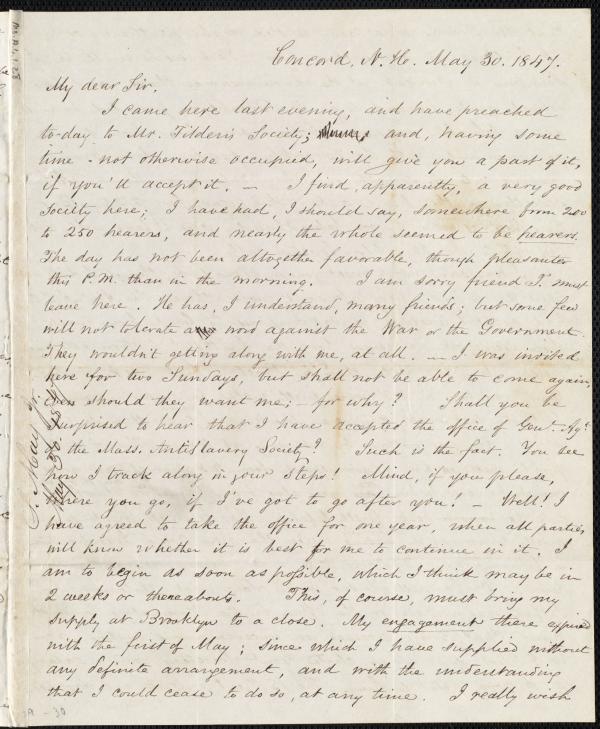 Concord, N. H. May 30. 1847.
My dear Sir,
I came here last evening, and have preached
to-day to Mr. Tilden's Society; and, having some
time - not otherwise occupied, will give you a part of it,
if you'll accept it. — I find, apparently, a very good
Society here; I have had, I should say, somewhere from 200
to 250 hearers, and nearly the whole seemed to be hearers.
The day has not been altogether favorable, though pleasanter
this P.M. than in the morning. I am sorry friend T. must
leave here. He has, I understand, many friends; but some few
will not tolerate a word against the War or the Government.
They wouldn't getting along with me, at all. — I was invited
here for two Sundays, but shall not be able to come again,
even should they want me; — for why? Shall you be
surprised to hear that I have accepted the office of Genl. Agt.
of the Mass. AntiSlavery Society? Such is the fact. You see
how I track along in your steps! Mind, if you please,
where you go, if I've got to go after you! — Well! I
have agreed to take the office for one year, when all parties
will know whether it is best for me to continue in it. I
am to begin as soon as possible, which I think may be in
2 weeks or thereabouts. This, of course, must bring my
supply at Brooklyn to a close. My engagement there expired
with the first of May; since which I have supplied without
any definite arrangement, and with the understanding
that I could cease to do so, at any time. I really wish
S. May Jr.
May 30.